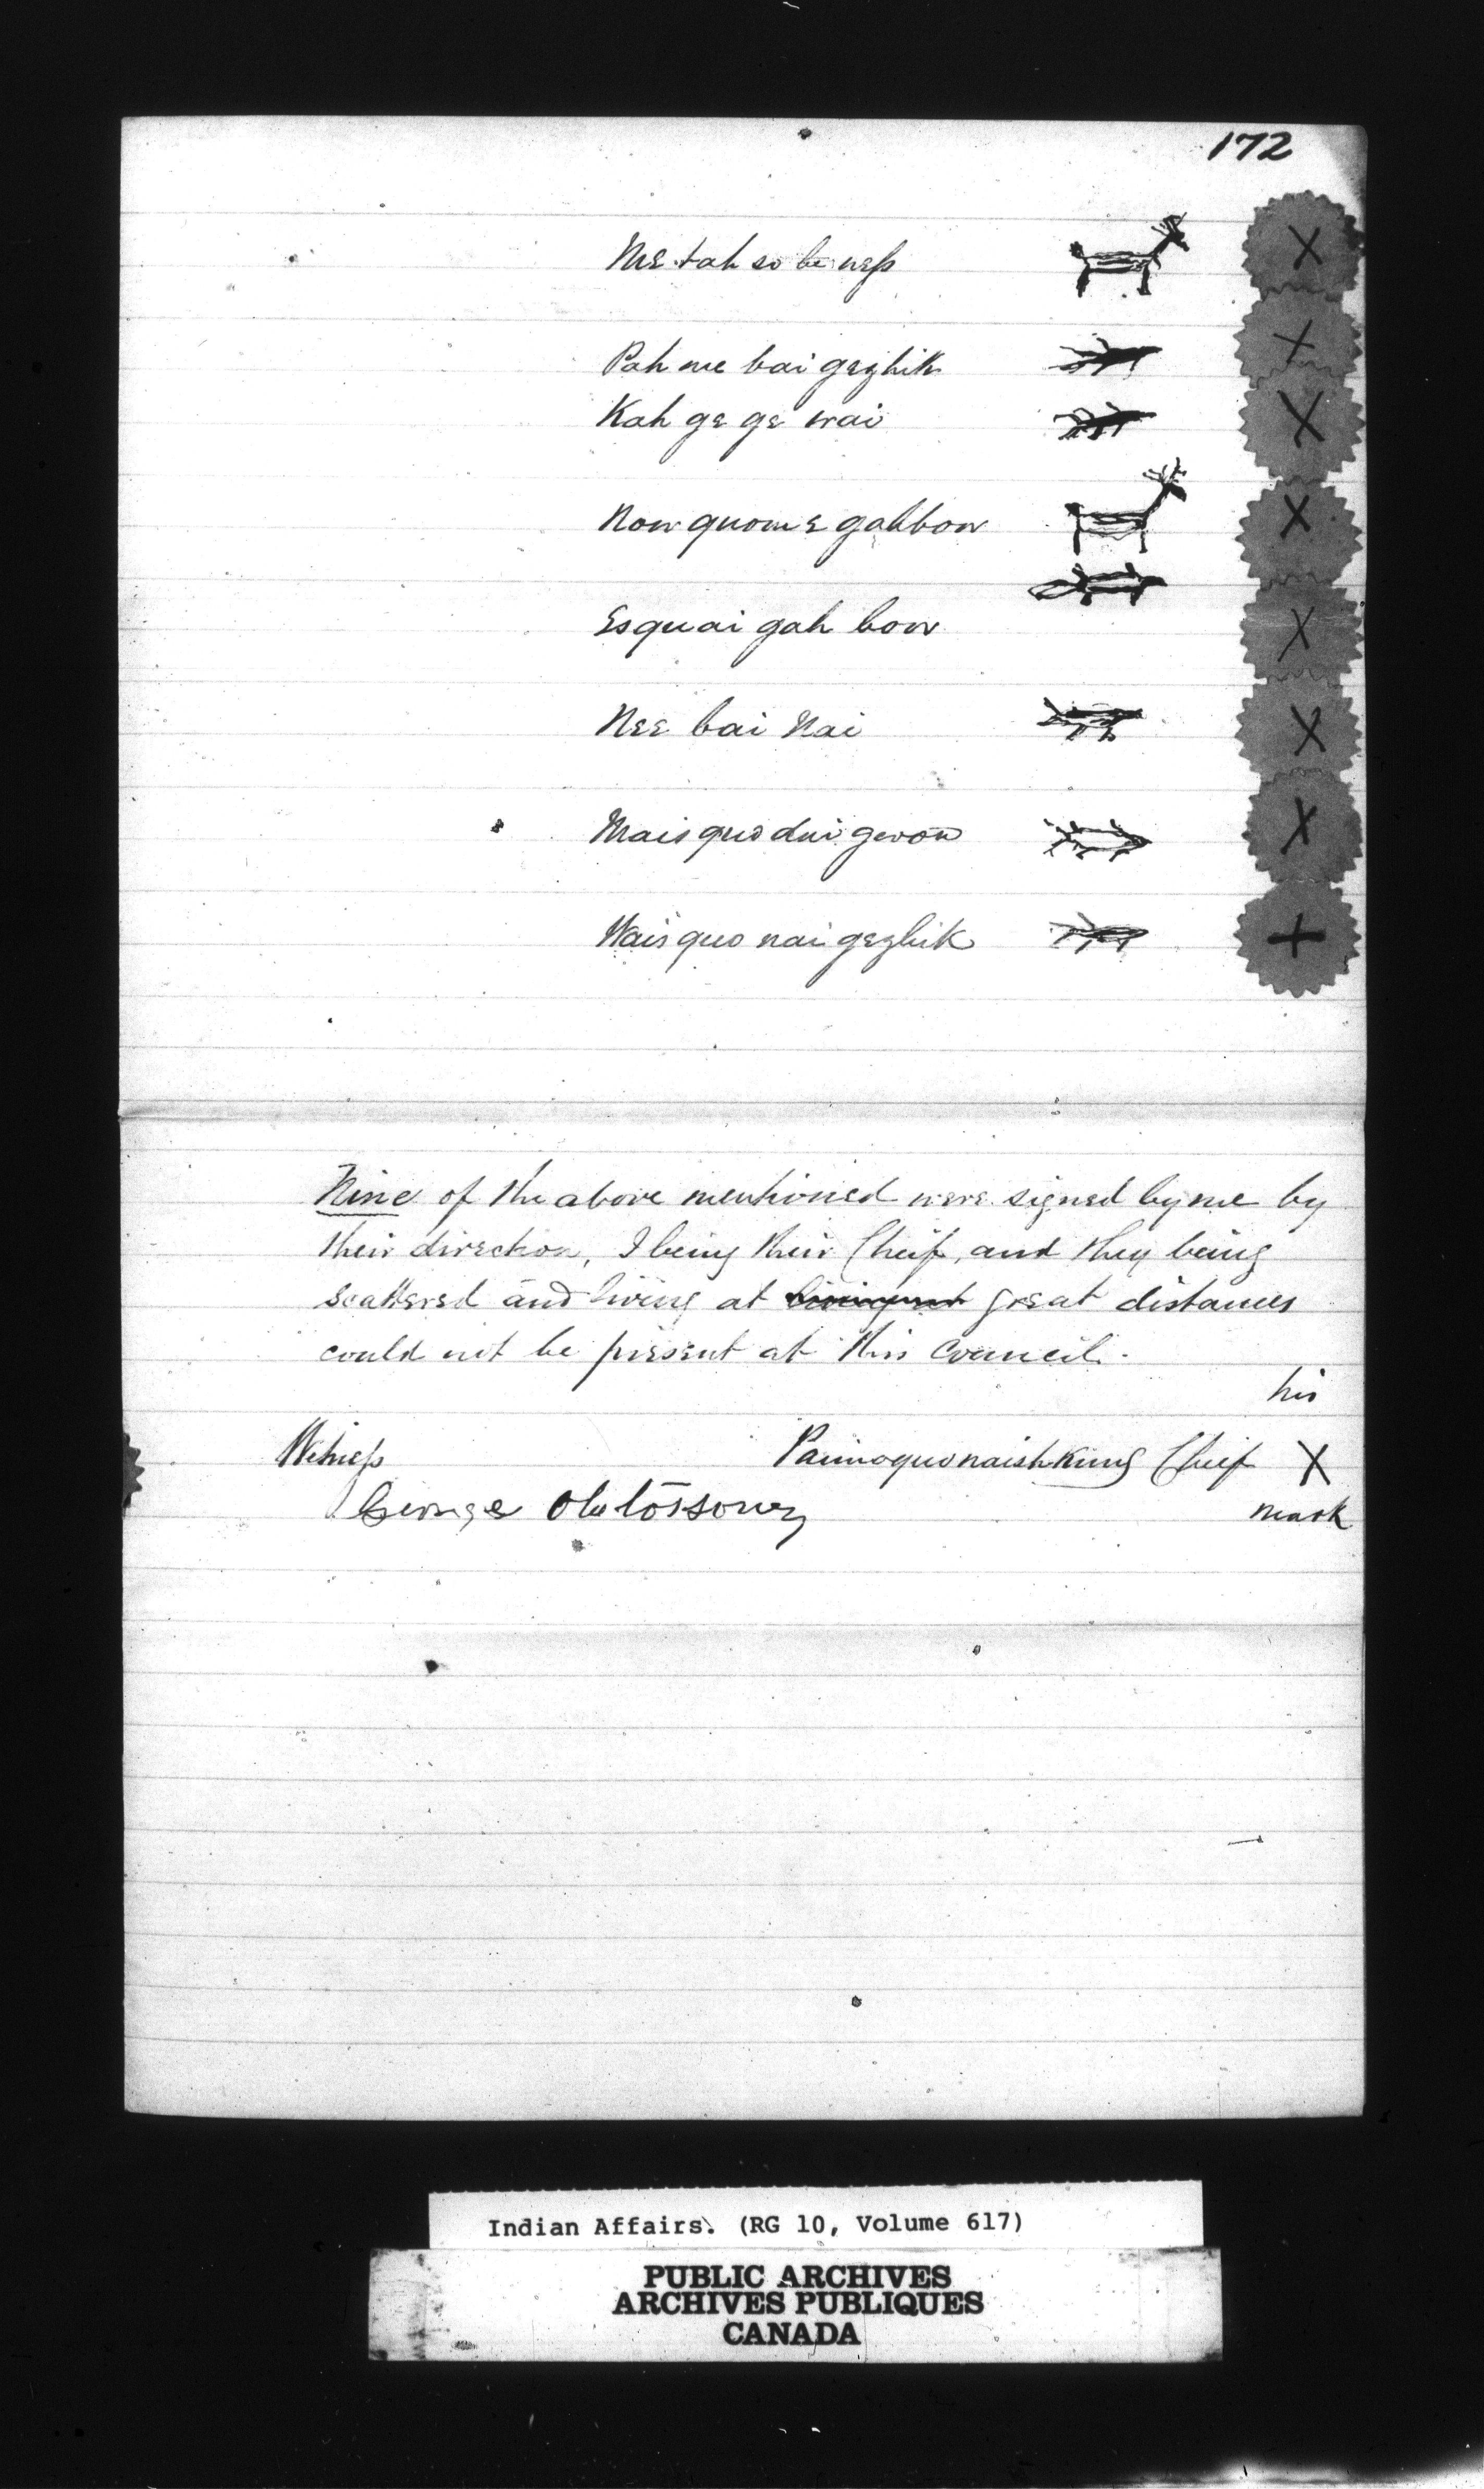 172
Me tah so be ness X
Pah me bai gezhik X
Kah ge ge wai X
Now quom e gahbow X
Esquai gah bow X
Nee bai nai X
Maisquo dui gewon X
Waisquo nai gezhik X
Nine of the above mentioned were signed by me by
their direction, I being their Cheif, and they being
scattered and living at great distances
could not be present at this Council.
his
Witness Paimoquonaishkung Cheif X
George mark
Indian Affairs. (RG 10, Volume 617)
PUBLIC ARCHIVES
ARCHIVES PUBLIQUES
CANADA